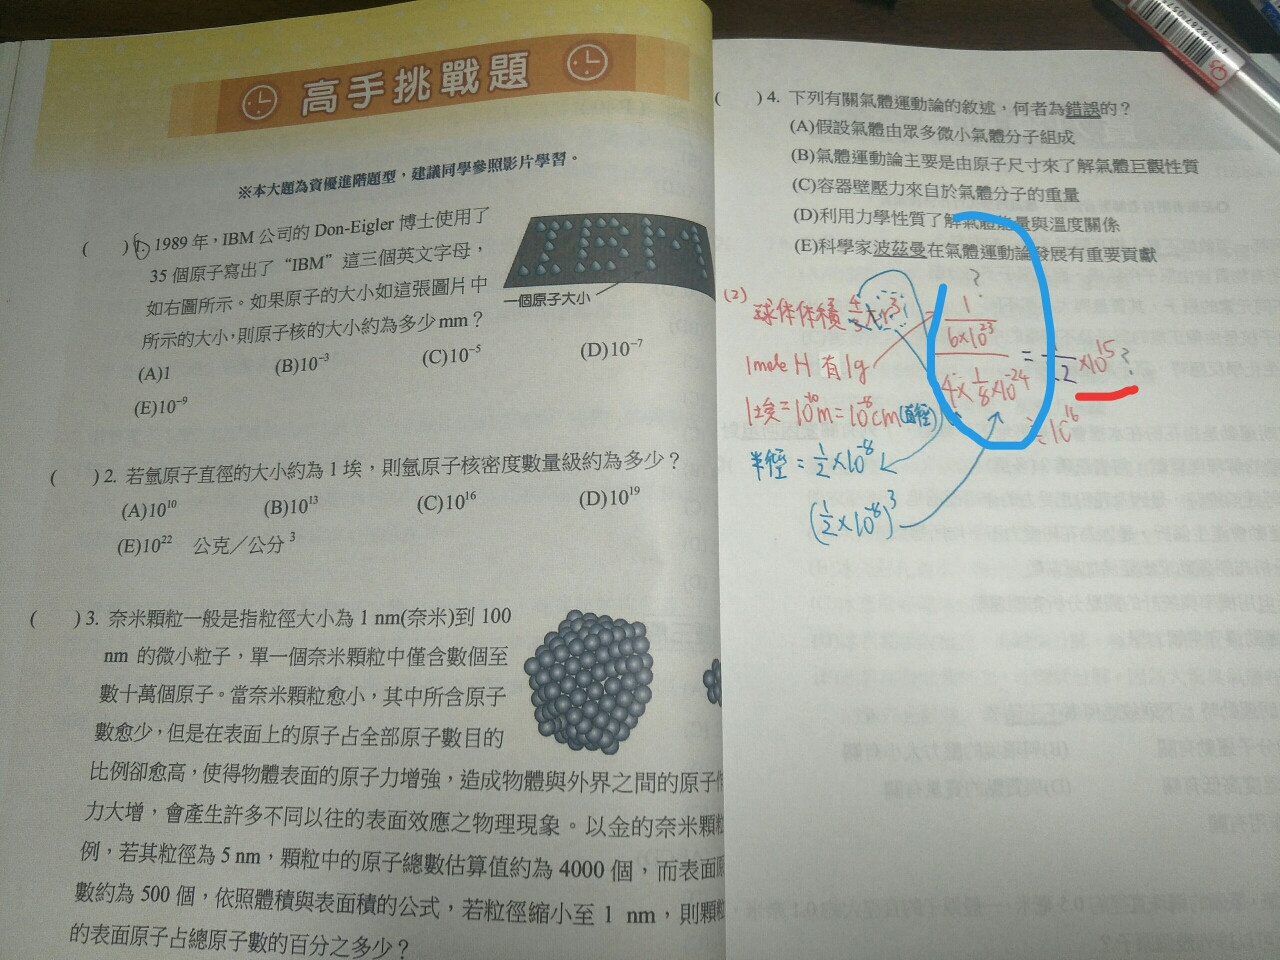 高手挑戰題
※本大題為資優進階題型，建議同學參照影片學習。
( ) 1. 1989 年，IBM 公司的 Don-Eigler 博士使用了
35 個原子寫出了 “IBM” 這三個英文字母，
如右圖所示。如果原子的大小如這張圖片中
所示的大小，則原子核的大小約為多少 mm？
(A)1 (B)10⁻³ (C)10⁻⁵ (D)10⁻⁷
(E)10⁻⁹
IBM
一個原子大小
( ) 2. 若氫原子直徑的大小約為 1 埃，則氫原子核密度數量級約為多少？
(A)10¹⁰ (B)10¹³ (C)10¹⁶ (D)10¹⁹
(E)10²² 公克／公分³
( ) 3. 奈米顆粒一般是指粒徑大小為 1 nm(奈米)到 100
nm 的微小粒子，單一個奈米顆粒中僅含數個至
數十萬個原子。當奈米顆粒愈小，其中所含原子
數愈少，但是在表面上的原子占全部原子數目的
比例卻愈高，使得物體表面的原子力增強，造成物體與外界之間的原子
力大增，會產生許多不同以往的表面效應之物理現象。以金的奈米顆
例，若其粒徑為 5 nm，顆粒中的原子總數估算值約為 4000 個，而表面
數約為 500 個，依照體積與表面積的公式，若粒徑縮小至 1 nm，則顆
的表面原子占總原子數的百分之多少？
( ) 4. 下列有關氣體運動論的敘述，何者為錯誤的？
(A)假設氣體由眾多微小氣體分子組成
(B)氣體運動論主要是由原子尺寸來了解氣體巨觀性質
(C)容器壁壓力來自於氣體分子的重量
(D)利用力學性質了解氣體能量與溫度關係
(E)科學家波茲曼在氣體運動論發展有重要貢獻
(2)
球体体積 4/3 πr³
1mole H 有 1g
1埃=10⁻¹⁰m=10⁻⁸cm(直徑)
半徑=1/2×10⁻⁸
(1/2×10⁻⁸)³
?
1
6×10²³
4×1/8×10⁻²⁴
= 1/12×10¹⁵?
≒10¹⁶